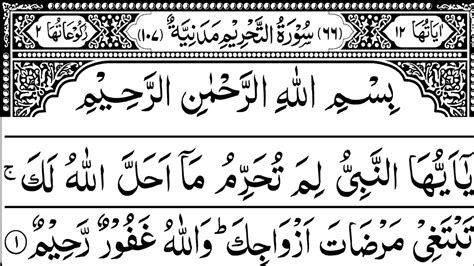 اٰیَاتُهَا ١٢ (٦٦) سُوْرَةُ التَّحْرِيْمِ مَدَنِيَّةٌ (١٠٧) رُكُوْعَاتُهَا ٢
بِسْمِ اللّٰهِ الرَّحْمٰنِ الرَّحِيْمِ
يٰۤاَيُّهَا النَّبِيُّ لِمَ تُحَرِّمُ مَاۤ اَحَلَّ اللّٰهُ لَكَ ۚ
تَبْتَغِيْ مَرْضَاتَ اَزْوَاجِكَ ؕ وَاللّٰهُ غَفُوْرٌ رَّحِيْمٌ ١